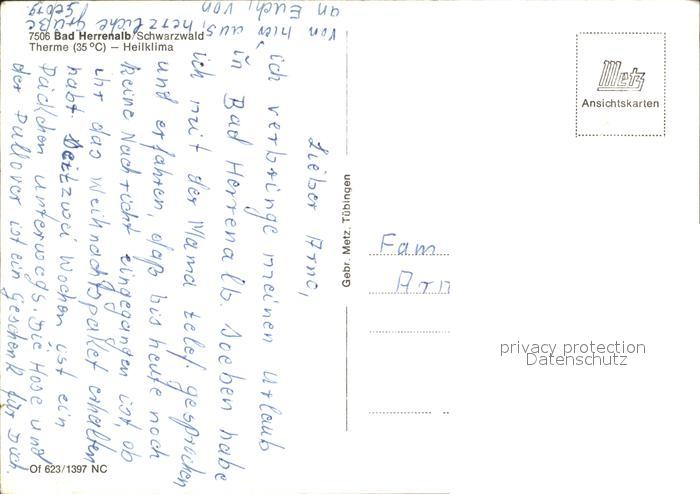 7506 Bad Herrenalb/Schwarzwald
Therme (35°C) – Heilklima
Lieber Arno,
ich verbringe meinen Urlaub
in Bad Herrenalb. Soeben habe
ich mit der Mama telef. gesprochen
und erfahren, daß bis heute noch
keine Nachricht eingegangen ist, ob
ihr das Weihnachtspaket erhalten
habt. Seit zwei Wochen ist ein
Päckchen unterwegs. Die Hose und
der Pullover ist ein Geschenk für Dich.
von hier aus, herzliche Grüße
an Euch, von Georg
Gebr. Metz, Tübingen
Metz
Ansichtskarten
Fam
Arn
privacy protection
Datenschutz
Of 623/1397 NC